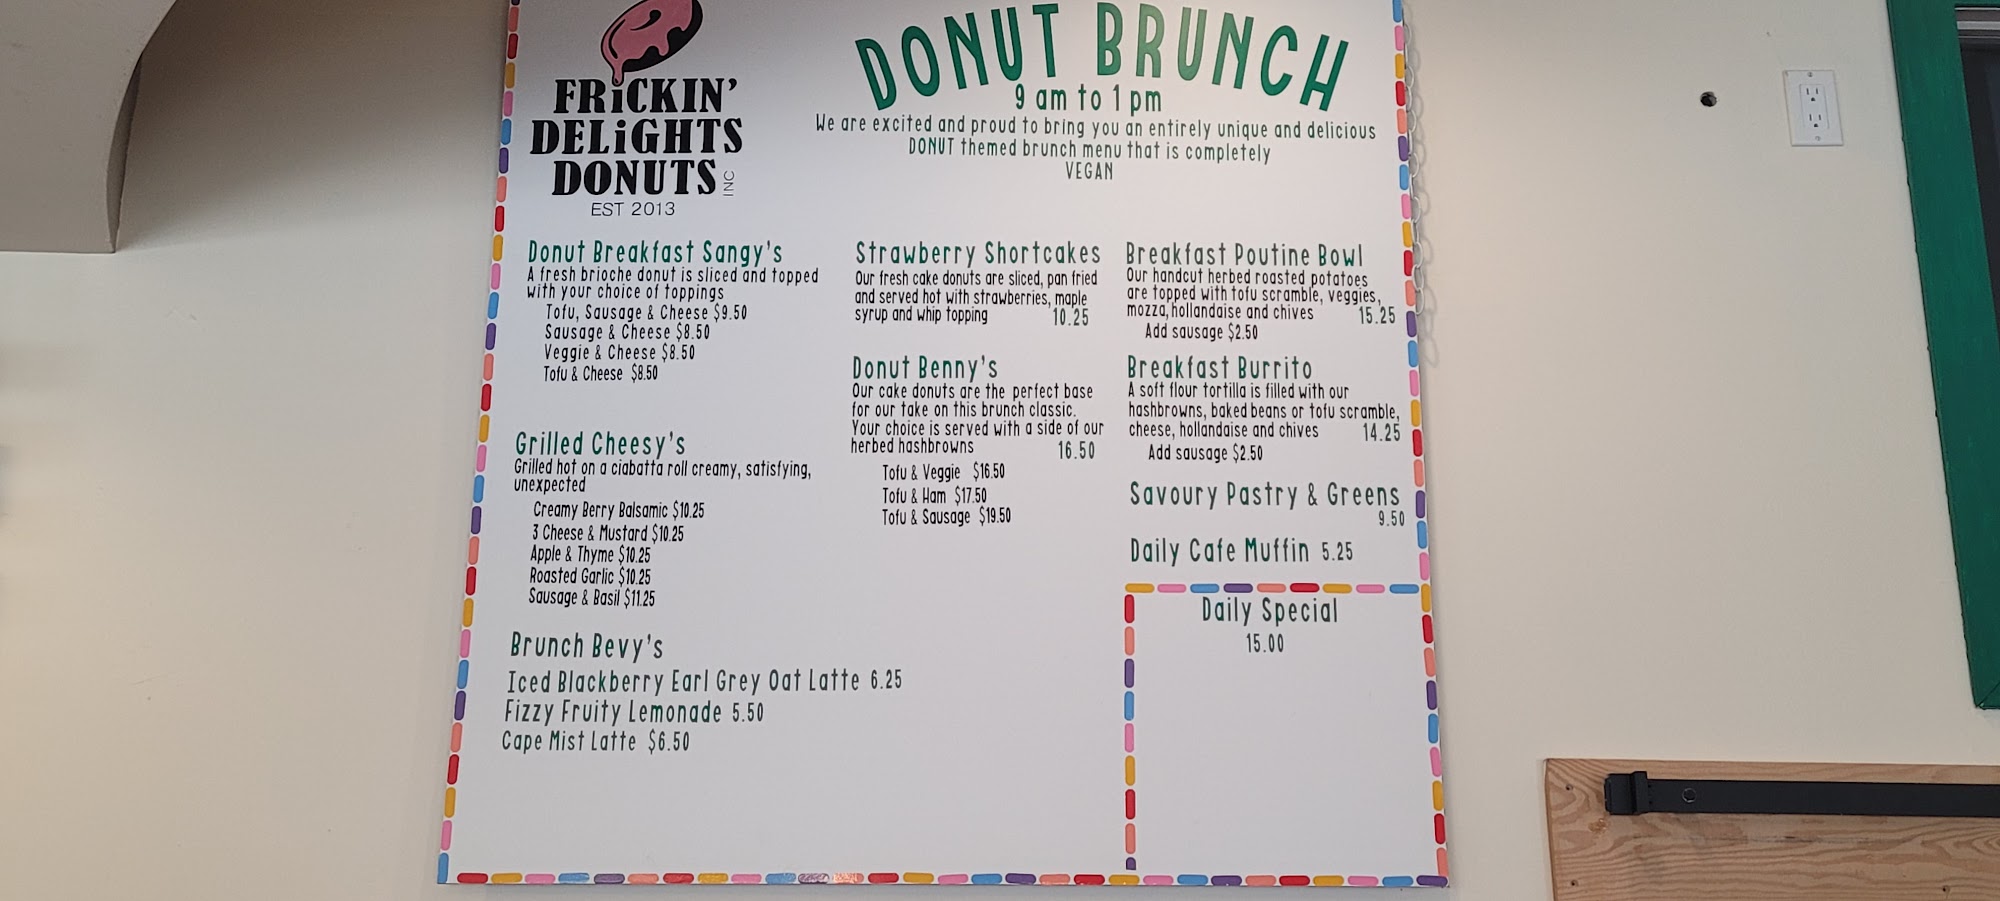 FRiCKIN'
DELiGHTS
DONUTS INC
EST 2013
DONUT BRUNCH
9 am to 1 pm
We are excited and proud to bring you an entirely unique and delicious
DONUT themed brunch menu that is completely
VEGAN
Donut Breakfast Sangy's
A fresh brioche donut is sliced and topped
with your choice of toppings
Tofu, Sausage & Cheese $9.50
Sausage & Cheese $8.50
Veggie & Cheese $8.50
Tofu & Cheese $8.50
Grilled Cheesy's
Grilled hot on a ciabatta roll creamy, satisfying,
unexpected
Creamy Berry Balsamic $10.25
3 Cheese & Mustard $10.25
Apple & Thyme $10.25
Roasted Garlic $10.25
Sausage & Basil $11.25
Brunch Bevy's
Iced Blackberry Earl Grey Oat Latte 6.25
Fizzy Fruity Lemonade 5.50
Cape Mist Latte $6.50
Strawberry Shortcakes
Our fresh cake donuts are sliced, pan fried
and served hot with strawberries, maple
syrup and whip topping 10.25
Donut Benny's
Our cake donuts are the perfect base
for our take on this brunch classic.
Your choice is served with a side of our
herbed hashbrowns 16.50
Tofu & Veggie $16.50
Tofu & Ham $17.50
Tofu & Sausage $19.50
Breakfast Poutine Bowl
Our handcut herbed roasted potatoes
are topped with tofu scramble, veggies,
mozza, hollandaise and chives 15.25
Add sausage $2.50
Breakfast Burrito
A soft flour tortilla is filled with our
hashbrowns, baked beans or tofu scramble,
cheese, hollandaise and chives 14.25
Add sausage $2.50
Savoury Pastry & Greens
9.50
Daily Cafe Muffin 5.25
Daily Special
15.00